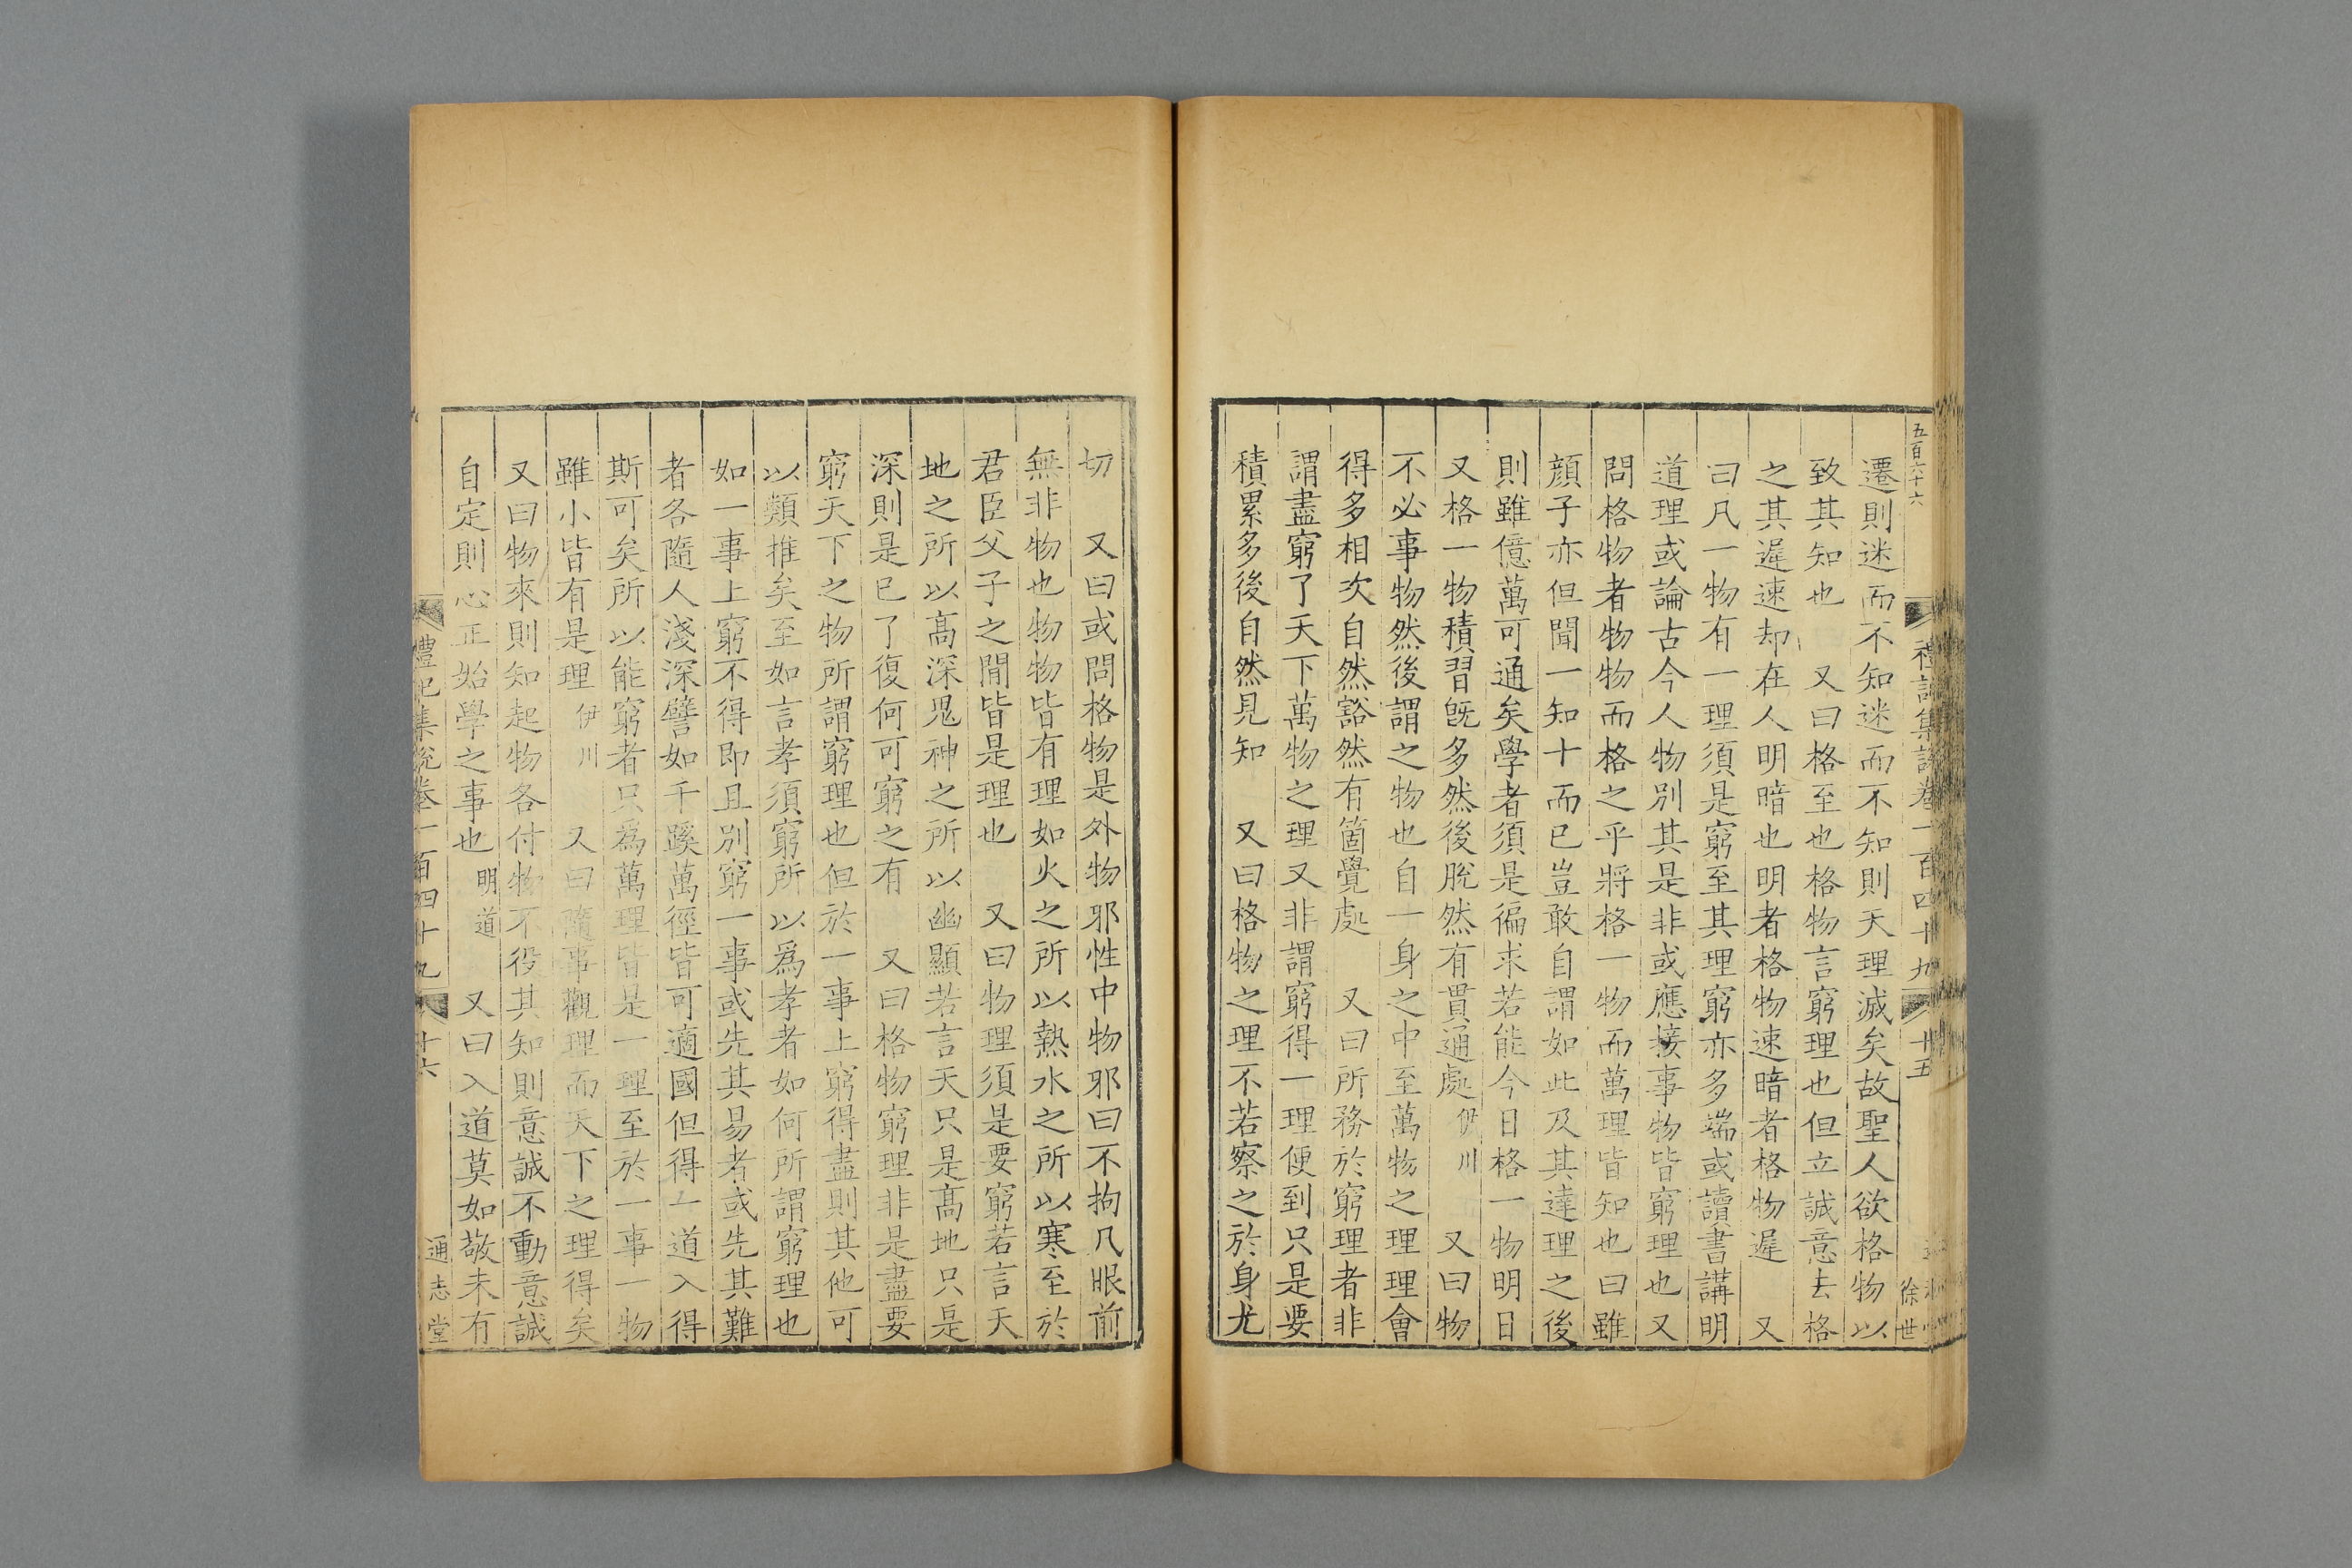 五百六十六
禮記集說卷一百四十九
十五
徐世
遷則迷而不知迷而不知則天理滅矣故聖人欲格物以
致其知也　又曰格至也格物言窮理也但立誠意去格
之其遲速却在人明暗也明者格物速暗者格物遲　又
曰凡一物有一理須是窮至其理窮亦多端或讀書講明
道理或論古今人物別其是非或應接事物皆窮理也又
問格物者物物而格之乎將格一物而萬理皆知也曰雖
顔子亦但聞一知十而已豈敢自謂如此及其達理之後
則雖億萬可通矣學者須是徧求若能今日格一物明日
又格一物積習旣多然後脫然有貫通處伊川　又曰物
不必事物然後謂之物也自一身之中至萬物之理理會
得多相次自然豁然有箇覺處　又曰所務於窮理者非
謂盡窮了天下萬物之理又非謂窮得一理便到只是要
積累多後自然見知　又曰格物之理不若察之於身尤
切　又曰或問格物是外物邪性中物邪曰不拘凡眼前
無非物也物物皆有理如火之所以熱水之所以寒至於
君臣父子之閒皆是理也　又曰物理須是要窮若言天
地之所以高深鬼神之所以幽顯若言天只是高地只是
深則是已了復何可窮之有　又曰格物窮理非是盡要
窮天下之物所謂窮理也但於一事上窮得盡則其他可
以類推矣至如言孝須窮所以爲孝者如何所謂窮理也
如一事上窮不得即且別窮一事或先其易者或先其難
者各隨人淺深譬如千蹊萬徑皆可適國但得一道入得
斯可矣所以能窮者只爲萬理皆是一理至於一事一物
雖小皆有是理伊川　又曰隨事觀理而天下之理得矣
又曰物來則知起物各付物不役其知則意誠不動意誠
自定則心正始學之事也明道　又曰入道莫如敬未有
禮記集說卷一百四十九
十六
通志堂